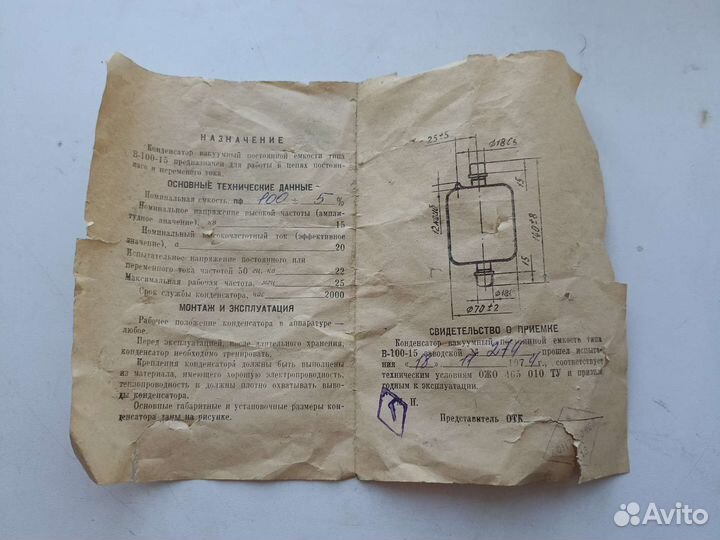 НАЗНАЧЕНИЕ
Конденсатор вакуумный постоянной емкости типа
В-100-15 предназначен для работы в цепях постоян-
ного и переменного тока.
ОСНОВНЫЕ ТЕХНИЧЕСКИЕ ДАННЫЕ
Номинальная емкость, пф 100 ± 5 %
Номинальное напряжение высокой частоты (ампли-
тудное значение), кв 15
Номинальный высокочастотный ток (эффективное
значение), а 20
Испытательное напряжение постоянного или
переменного тока частотой 50 гц, кв 22
Максимальная рабочая частота, мгц 25
Срок службы конденсатора, час 2000
МОНТАЖ И ЭКСПЛУАТАЦИЯ
Рабочее положение конденсатора в аппаратуре —
любое.
Перед эксплуатацией, после длительного хранения,
конденсатор необходимо тренировать.
Крепления конденсатора должны быть выполнены
из материала, имеющего хорошую электропроводность,
теплопроводность и должны плотно охватывать выво-
ды конденсатора.
Основные габаритные и установочные размеры кон-
денсатора даны на рисунке.
25±5
15
140±8
15
Ф70±2
СВИДЕТЕЛЬСТВО О ПРИЕМКЕ
Конденсатор вакуумный постоянной емкости типа
В-100-15 заводской № 274 прошел испыта-
ния с 18 197 г., соответствует
техническим условиям ОЖО 465 010 ТУ и признан
годным к эксплуатации.
И.
Представитель ОТК
Avito